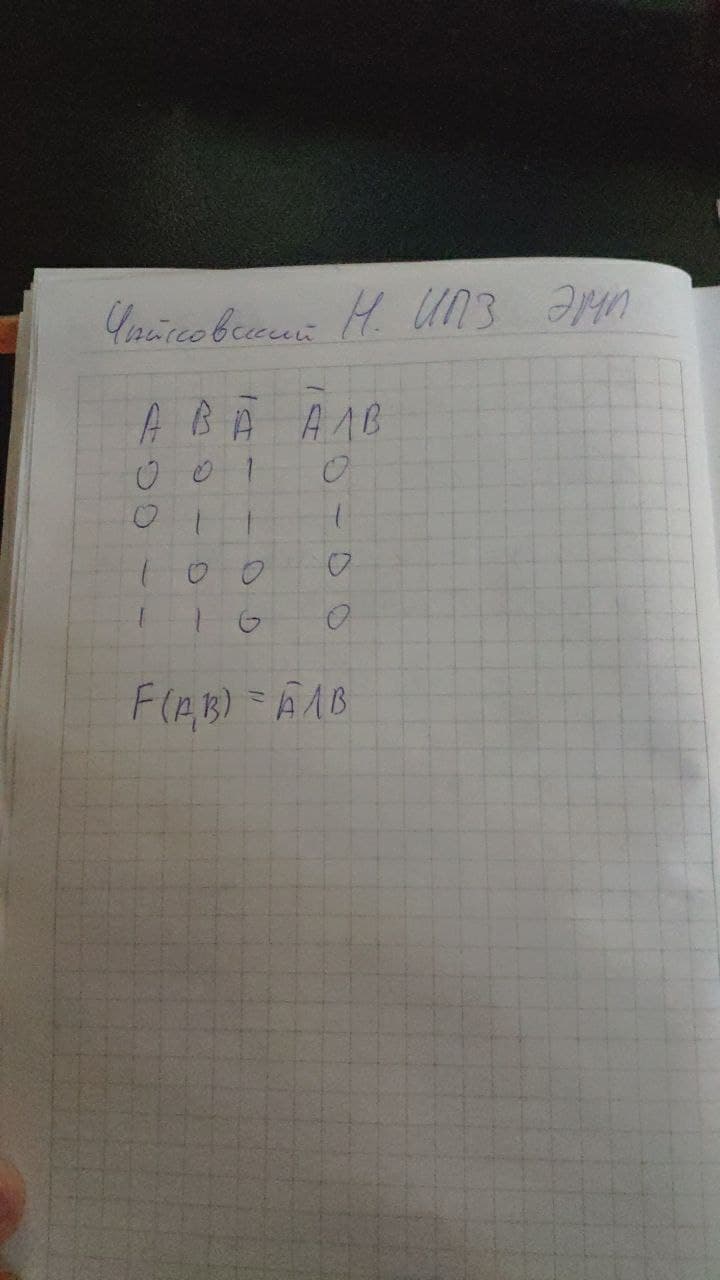 Чайковский Н. ИПЗ ЭМП
A B Ā Ā ∧ B
0 0 1 0
0 1 1 1
1 0 0 0
1 1 0 0
F(A,B) = Ā ∧ B